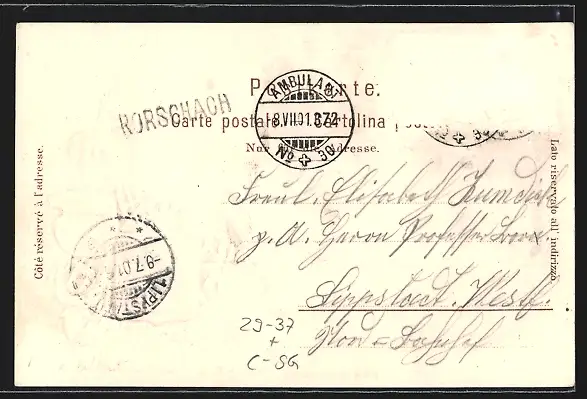 Postkarte.
RORSCHACH
Carte postale. Cartolina postale.
Nur für die Adresse.
AMBULANT
8.VII.01.872
No 30
Côté réservé à l'adresse.
Lato riservato all' indirizzo
LIPPST
-9.7.01
Fräul. Elisabeth
p. A. Herrn Professor
Lippstadt. Westf.
29-37
+
C-SG